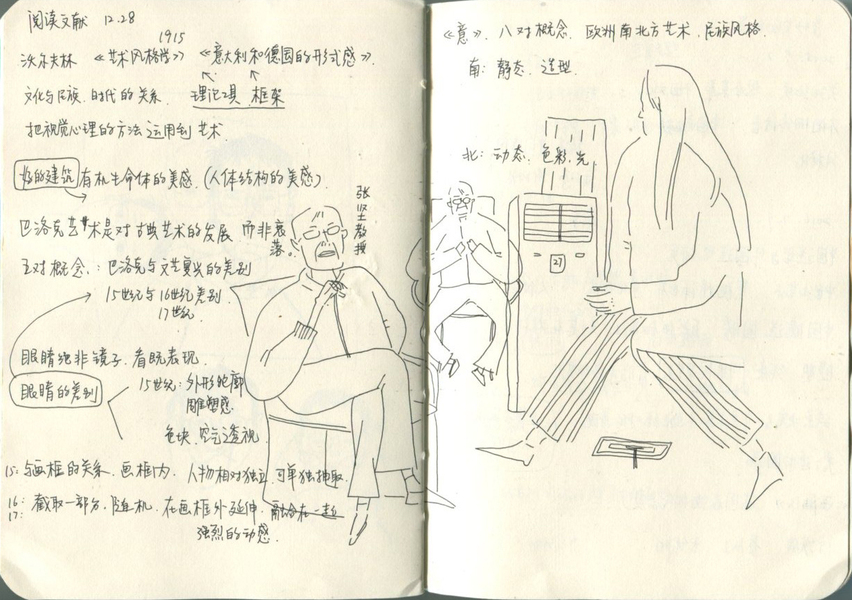 阅读文献 12.28
1915
沃尔夫林 《艺术风格学》 《意大利和德国的形式感》.
文化与民族.时代的关系. 理论工具 框架
把视觉心理的方法运用到艺术
好的建筑 有机生命体的美感.(人体结构的美感).
张坚教授
巴洛克艺术是对古典艺术的发展 而非衰落。
五对概念.:巴洛克与文艺复兴的差别
15世纪与16世纪差别.
17世纪.
眼睛绝非镜子.看既表现.
眼睛的差别
15世纪:外形轮廓
雕塑感.
色块.空气透视.
15:与画框的关系.画框内.人物相对独立.可单独抽取.
16: 17: 截取一部分.随机.在画框外延伸.融合在一起
强烈的动感.
《意》.八对概念.欧洲南北方艺术.民族风格.
南:静态.造型.
北:动态.色彩.光
27